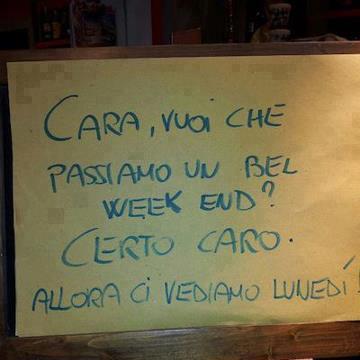 CARA, VUOI CHE
PASSIAMO UN BEL
WEEK END?
CERTO CARO.
ALLORA CI VEDIAMO LUNEDÍ!